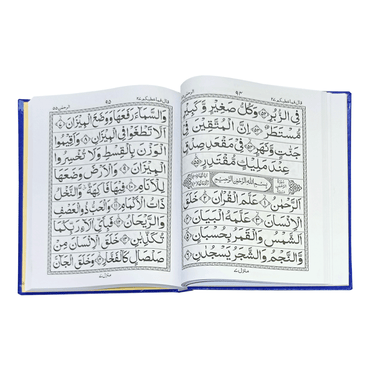 قال فما خطبكم ٢٧
فِي الزُّبُرِ ﴿٥٢﴾ وَكُلُّ صَغِيْرٍ وَّكَبِيْرٍ
مُّسْتَطَرٌ ﴿٥٣﴾ اِنَّ الْمُتَّقِيْنَ فِيْ
جَنّٰتٍ وَّنَهَرٍ ﴿٥٤﴾ فِيْ مَقْعَدِ صِدْقٍ
عِنْدَ مَلِيْكٍ مُّقْتَدِرٍ ﴿٥٥﴾
بِسْمِ اللّٰهِ الرَّحْمٰنِ الرَّحِيْمِ
اَلرَّحْمٰنُ ﴿١﴾ عَلَّمَ الْقُرْاٰنَ ﴿٢﴾ خَلَقَ
الْاِنْسَانَ ﴿٣﴾ عَلَّمَهُ الْبَيَانَ ﴿٤﴾
اَلشَّمْسُ وَالْقَمَرُ بِحُسْبَانٍ ﴿٥﴾
وَّالنَّجْمُ وَالشَّجَرُ يَسْجُدٰنِ ﴿٦﴾
الرحمن ٥٥
قال فما خطبكم ٢٧
وَالسَّمَآءَ رَفَعَهَا وَوَضَعَ الْمِيْزَانَ ﴿٧﴾
اَلَّا تَطْغَوْا فِي الْمِيْزَانِ ﴿٨﴾ وَاَقِيْمُوا
الْوَزْنَ بِالْقِسْطِ وَلَا تُخْسِرُوا
الْمِيْزَانَ ﴿٩﴾ وَالْاَرْضَ وَضَعَهَا
لِلْاَنَامِ ﴿١٠﴾ فِيْهَا فَاكِهَةٌ وَّالنَّخْلُ
ذَاتُ الْاَكْمَامِ ﴿١١﴾ وَالْحَبُّ ذُو الْعَصْفِ
وَالرَّيْحَانُ ﴿١٢﴾ فَبِاَيِّ اٰلَآءِ رَبِّكُمَا
تُكَذِّبٰنِ ﴿١٣﴾ خَلَقَ الْاِنْسَانَ مِنْ
صَلْصَالٍ كَالْفَخَّارِ ﴿١٤﴾ وَخَلَقَ الْجَآنَّ